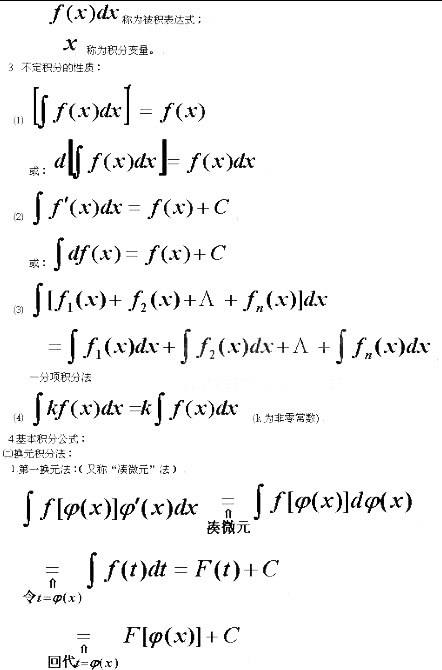 f(x)dx 称为被积表达式；
x 称为积分变量。
3. 不定积分的性质：
⑴ [∫f(x)dx]′ = f(x)
或：d[∫f(x)dx] = f(x)dx
⑵ ∫f′(x)dx = f(x)+C
或：∫df(x) = f(x)+C
⑶ ∫[f₁(x)+f₂(x)+Λ+fₙ(x)]dx
=∫f₁(x)dx+∫f₂(x)dx+Λ+∫fₙ(x)dx
—分项积分法
⑷ ∫kf(x)dx=k∫f(x)dx (k为非零常数)
4.基本积分公式：
㈡换元积分法：
1.第一换元法：（又称“凑微元”法）
∫f[φ(x)]φ′(x)dx =⇑凑微元 ∫f[φ(x)]dφ(x)
=⇑令t=φ(x) ∫f(t)dt = F(t)+C
=⇑回代t=φ(x) F[φ(x)]+C